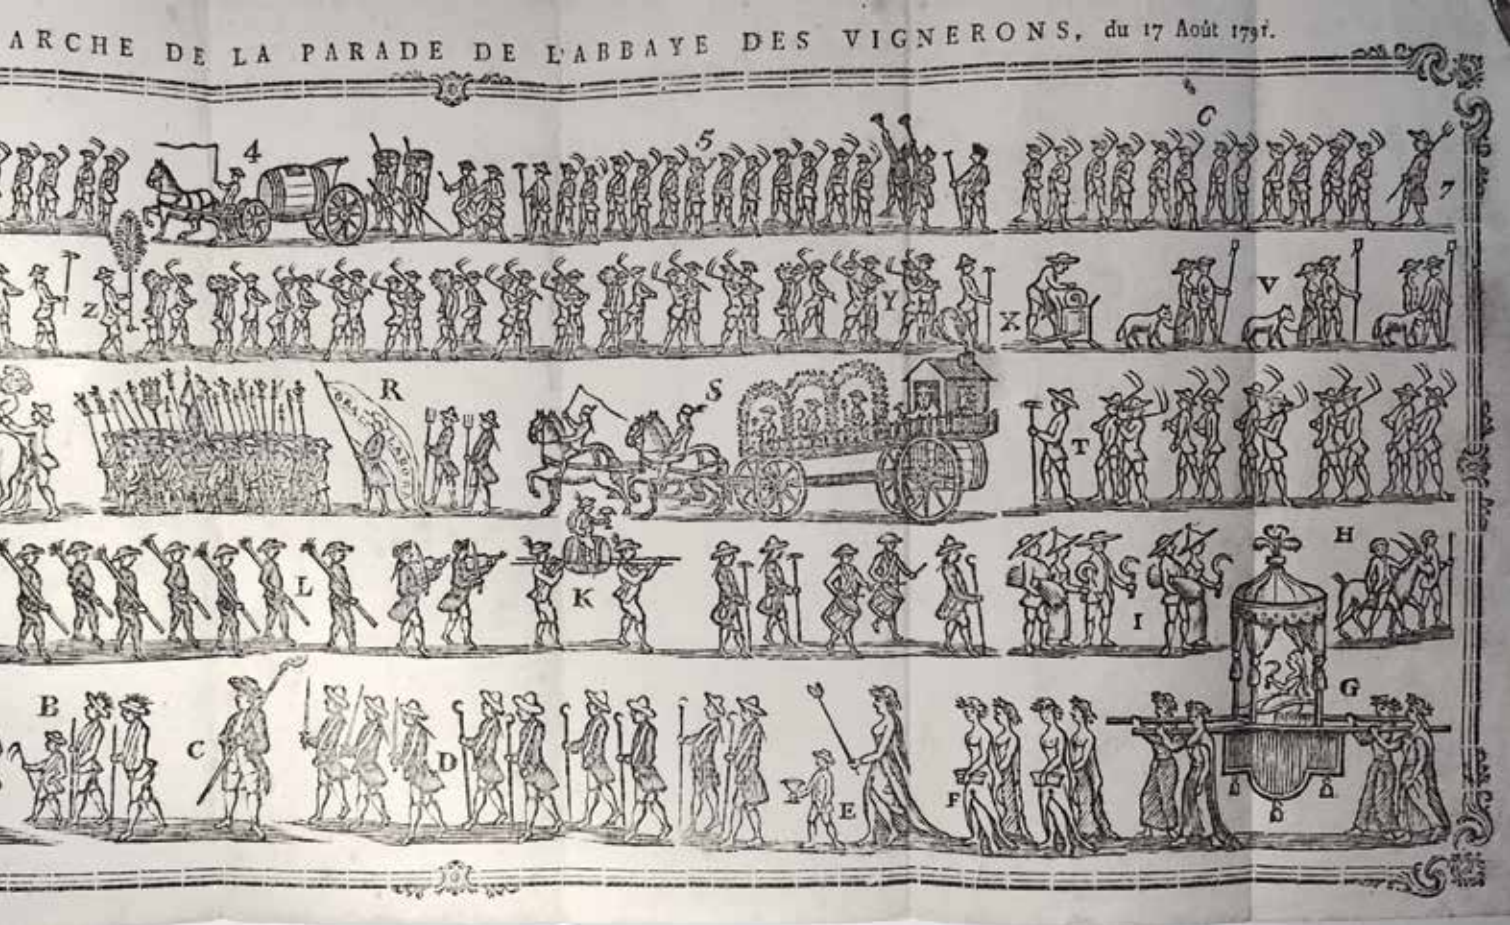 ARCHE DE LA PARADE DE L'ABBAYE DES VIGNERONS, du 17 Août 1791.
4 5 C 7
Z Y X V
R S T
ORA LABORA
L K I H
B C D E F G